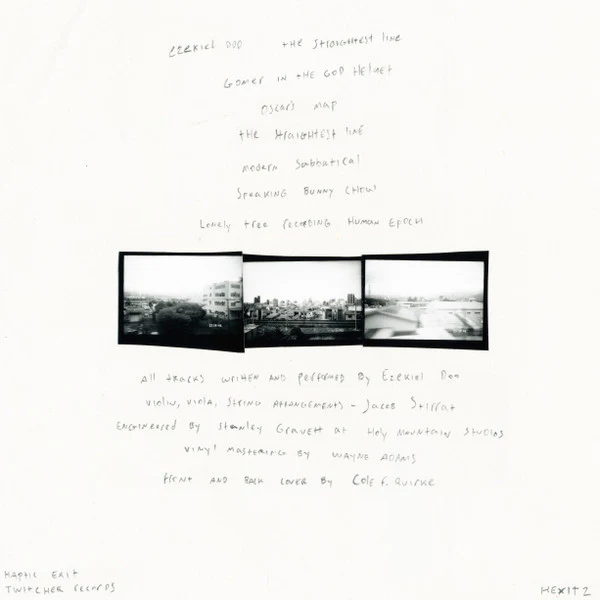 EZEKIEL DOO THE STRAIGHTEST LINE
GOMER IN THE GOD HELMET
OSCAR'S MAP
THE STRAIGHTEST LINE
MODERN SABBATICAL
SPEAKING BUNNY CHOW
LONELY TREE RECORDING HUMAN EPOCH
ALL TRACKS WRITTEN AND PERFORMED BY EZEKIEL DOO
VIOLIN, VIOLA, STRING ARRANGEMENTS - JACOB STIRRAT
ENGINEERED BY STANLEY GRAVETT AT HOLY MOUNTAIN STUDIOS
VINYL MASTERING BY WAYNE ADAMS
FRONT AND BACK COVER BY COLE F. QUIRKE
HAPTIC EXIT
TWITCHER RECORDS
HEXIT2